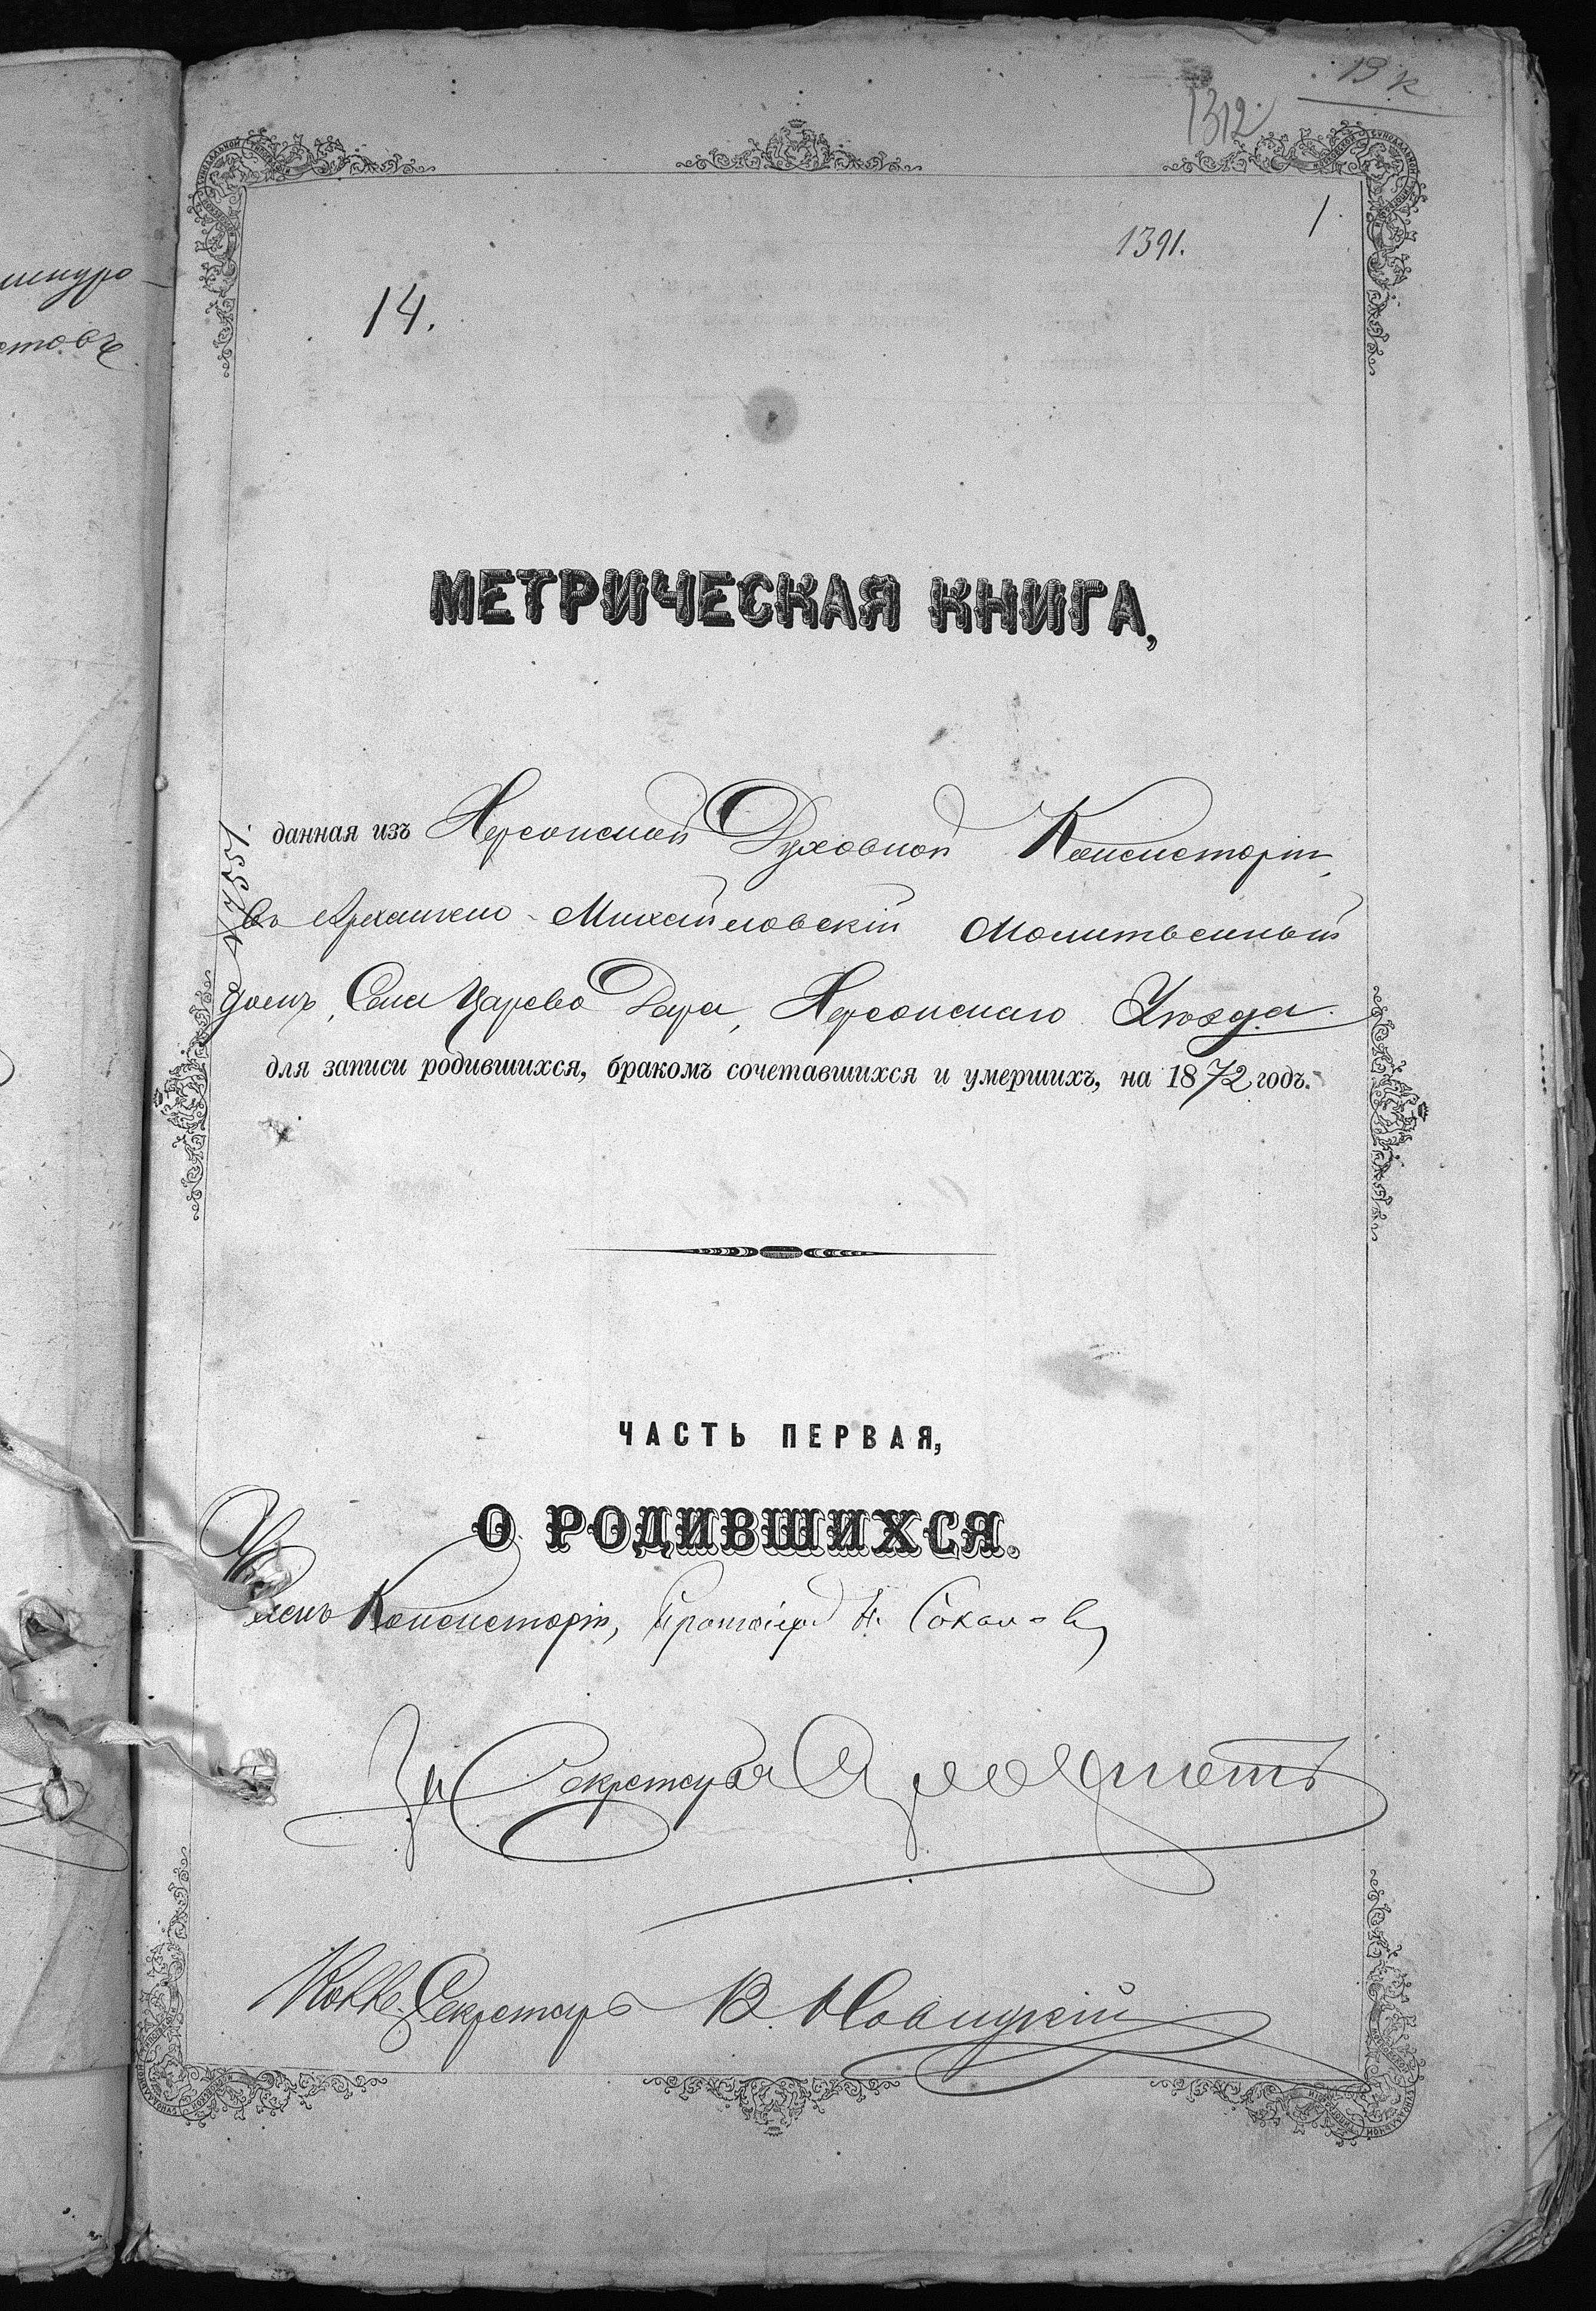 19 к
1312
1391.
1
14.
МЕТРИЧЕСКАЯ КНИГА,
данная изъ Херсонской Духовной Консисторіи,
въ Архангело-Михайловскій Молитвенный
домъ, Села Царево Дара, Херсонскаго Уѣзда
для записи родившихся, бракомъ сочетавшихся и умершихъ, на 1872 годъ.
ЧАСТЬ ПЕРВАЯ,
О РОДИВШИХСЯ.
Членъ Консисторіи, Протоіерей Н. Соколовъ
За Секретаря
Колл. Секретарь В. Новицкій